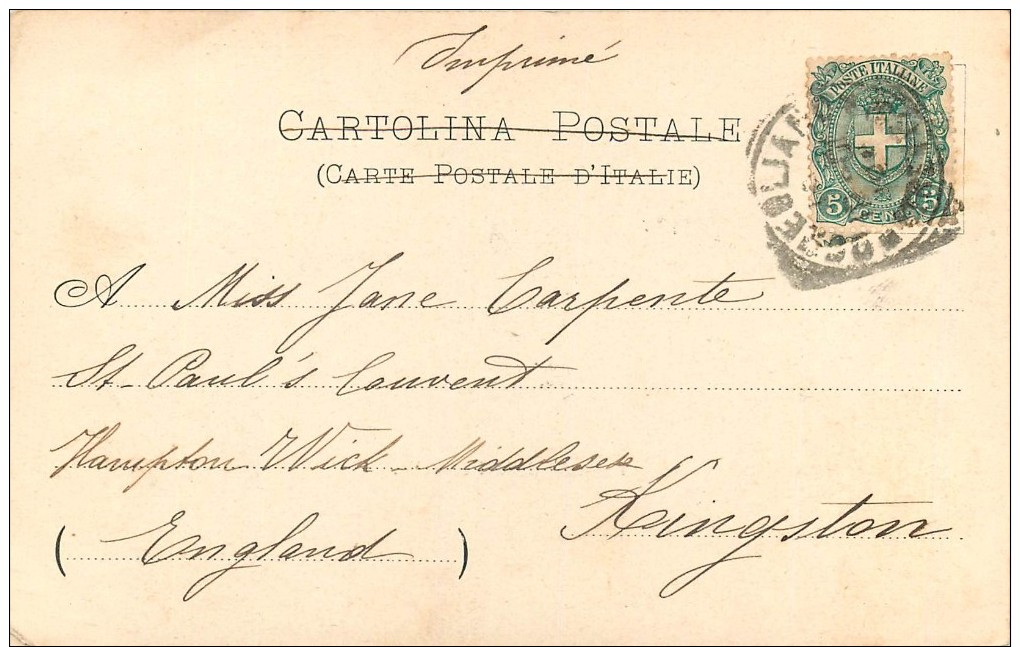 Imprimé
CARTOLINA POSTALE
(CARTE POSTALE D'ITALIE)
POSTE ITALIANE
5 CENT 5
A Miss Jane Carpente
St Paul's Convent
Hampton Wick - Middlesex
Kingston
( England )